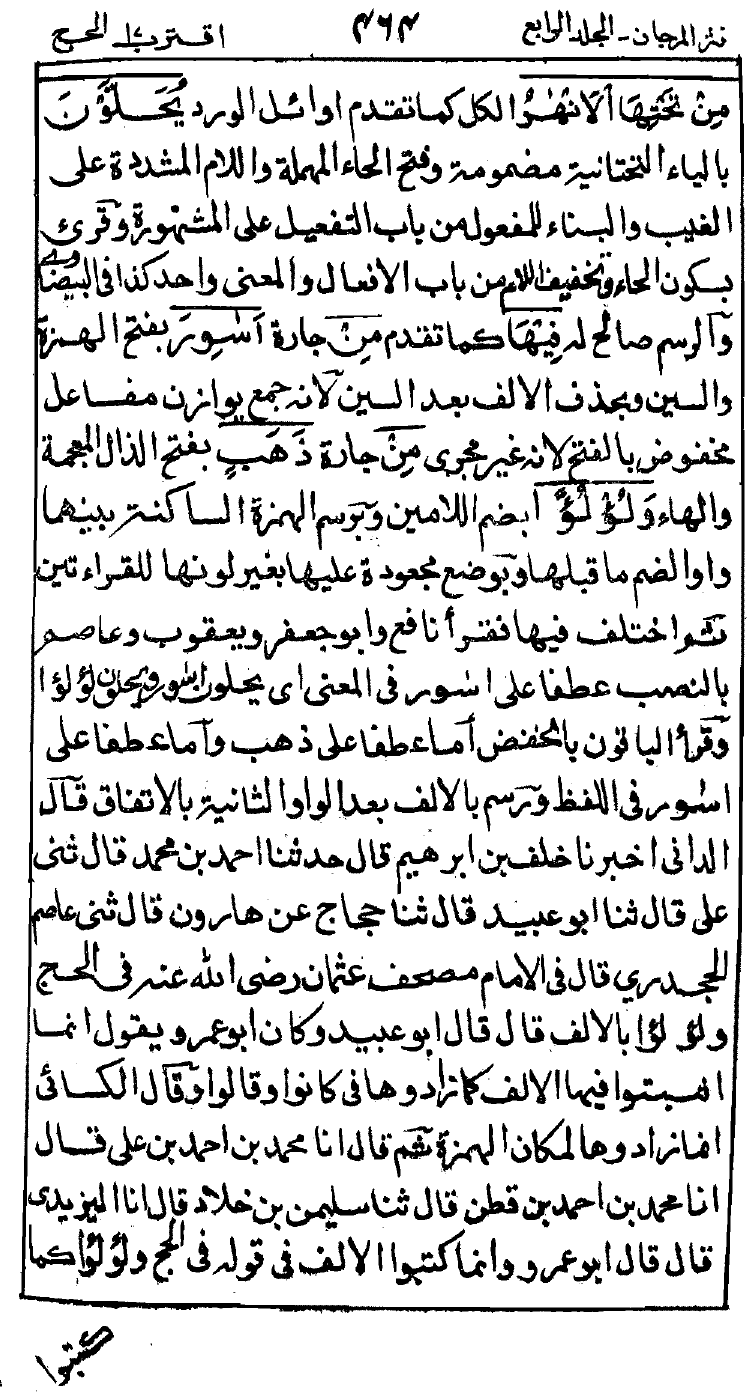 نثر المرجان - المجلد الرابع ٤٦٤ اقترب ١٧ الحج
مِنْ تَحْتِهَا ٱلْأَنْهٰرُ الكل كما تقدم اوائل الورد يُحَلَّوْنَ
بالياء التحتانية مضمومة وفتح الحاء المهملة واللام المشددة على
الغيب والبناء للمفعول من باب التفعيل على المشهورة وقرئ
بسكون الحاء وتخفيف اللام من باب الافعال والمعنى واحد كذا فى البيضاوى
والرسم صالح له فِيْهَا كما تقدم مِنْ جارة اَسٰوِرَ بفتح الهمزة
والسين وبحذف الالف بعد السين لانه جمع يوازن مفاعل
مخفوض بالفتح لانه غير مجرى مِنْ جارة ذَهَبٍ بفتح الذال المعجمة
والهاء وَلُؤْلُؤًا بضم اللامين وبرسم الهمزة الساكنة بينهما
واوا لضم ما قبلها وبوضع مجعودة عليها بغير لونها للقراءتين
ثم اختلف فيها فقرأ نافع وابو جعفر ويعقوب وعاصم
بالنصب عطفا على اسٰور فى المعنى اى يحلون اسٰور ويحلون لؤلؤا
وقرأ الباقون بالخفض أما عطفا على ذهب وأما عطفا على
اسٰور فى اللفظ ورسم بالالف بعد الواو الثانية بالاتفاق قال
الدانى اخبرنا خلف بن ابرهيم قال حدثنا احمد بن محمد قال ثنى
على قال ثنا ابو عبيد قال ثنا حجاج عن هارون قال ثنى عاصم
الجحدري قال فى الامام مصحف عثمان رضى الله عنه فى الحج
ولؤلؤا بالالف قال قال ابو عبيد وكان ابو عمرو يقول انما
اثبتوا فيها الالف كما زادوها فى كانوا وقالوا وقال الكسائى
انما زادوها لمكان الهمزة ثم قال انا محمد بن احمد بن على قال
انا محمد بن احمد بن قطن قال ثنا سليمن بن خلاد قال انا اليزيدى
قال قال ابو عمرو وانما كتبوا الالف فى قوله فى الحج ولؤلؤا كما
كتبوا